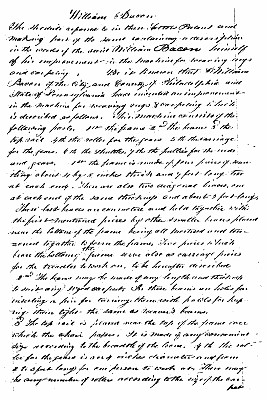 William Bacon
The Schedule referred to in these Letters Patent and
making part of the same containing a description
in the words of the said William Bacon himself
of his improvement in the machine for weaving rugs
and carpeting. Be it known that I William
Bacon of the City and County of Philadelphia and
State of Pennsylvania have invented an improvement
in the machine for weaving rugs & carpeting which
is described as follows. This machine consists of the
following parts, 1st the frame 2nd The beams 3 the
top rail 4th the roller for the gears 5 the carriage
for the gears. 6 the shuttle 7 the pullies for the
and gears. 1st the frame is made of four pieces of
at each end. There are also two diagonal braces, one
at each end of the same thickness and about 5 feet long.
These side braces are connected and held together with
the first mentioned pieces by other smaller braces placed
near the bottom of the frame being all mortised and
together to form the frame. Two pieces which
form the bottom frame serve also as carriage pieces
for the to work on, to be hereafter described
2nd The beams may be made of any length and thickness
to suit any sized carpets. The three beams in holes for
inserting a pin for turning them with pawls for keeping
them tight the same as beams.
3 The top rail is placed near the top of the frame over
which the chain passes. It is made of any convenient
size according to the breadth of the loom. 4 The
for the gears is inches diameter and from
2 to feet long for one person to work on. There may
be any number of rollers according to the size of the